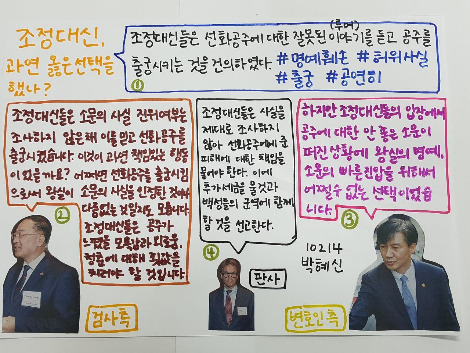 조정대신,
과연 옳은선택을
했나?
①
(루머)
조정대신들은 선화공주에 대한 잘못된 이야기를 듣고 공주를
출궁시키는 것을 건의하였다. #명예훼손 #허위사실
#출궁 #공연히
조정대신들은 소문의 사실 진위여부는
조사하지 않은채 이를 믿고 선화공주를
출궁시켰습니다. 이것이 과연 책임있는 행동
이 있을까요? 어쩌면 선화공주를 출궁시킴
으로서 왕실이 소문의 사실을 인정한 것과
다름없는 것일지도 모릅니다.
조정대신들은 공주가
느꼈을 모욕감과
대해 죗값을
치러야 할 것입니다.
②
검사측
조정대신들은 사실을
제대로 조사하지
않아 선화공주에게 준
피해에 대한 책임을
물어야 한다. 이에
추가세금을 물 것과
백성들의 군역에 함께
할 것을 선고한다.
④
판사
하지만 조정대신들의 입장에서
공주에 대한 안 좋은 소문이
퍼진 상황에 왕실의 명예,
소문의 빠른진압을 위해서
어쩔수 없는 선택이었습
니다.
③
10214
박혜신
변호인측